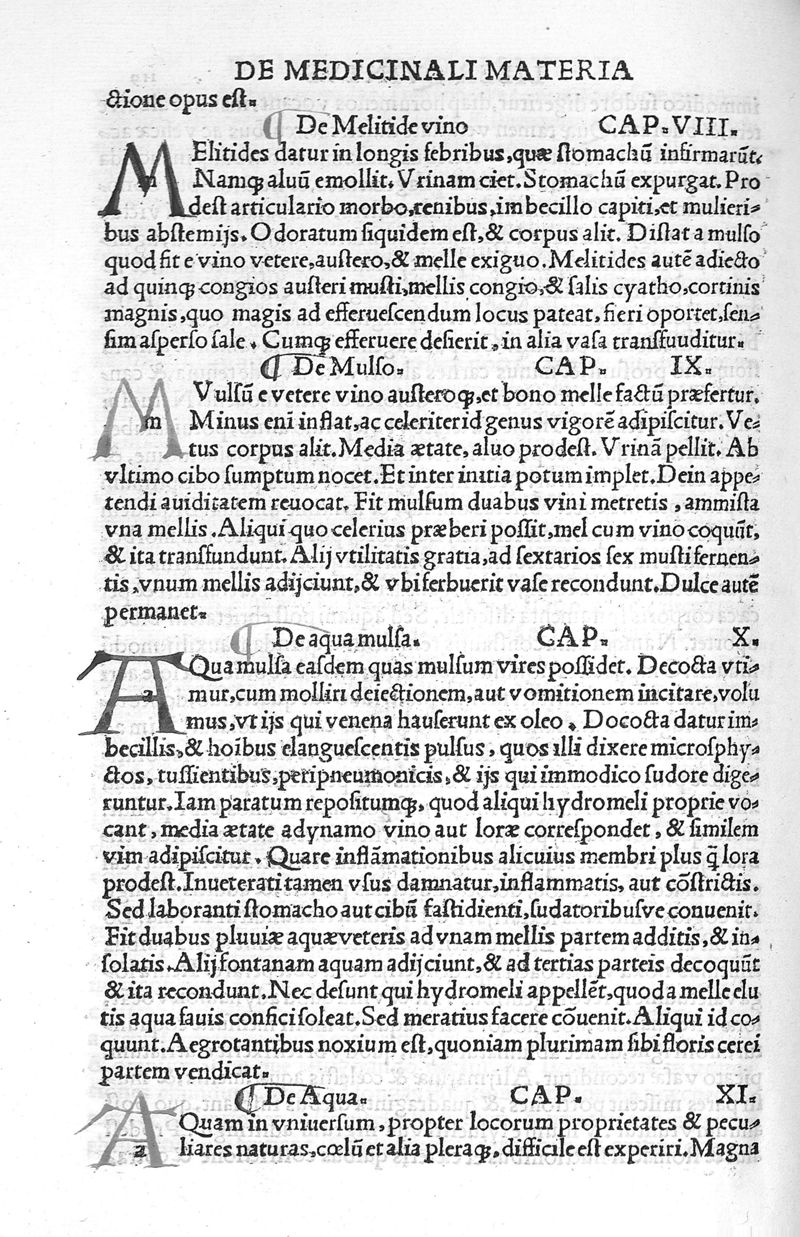 DE MEDICINALI MATERIA
ctione opus est.
¶ De Melitide vino CAP. VIII.
MElitides datur in longis febribus, quæ stomachū infirmarūt.
Namq; aluū emollit. Vrinam ciet. Stomachū expurgat. Pro
dest articulario morbo, renibus, imbecillo capiti, et mulieri-
bus abstemijs. Odoratum siquidem est, & corpus alit. Distat a mulso
quod fit e vino vetere, austero, & melle exiguo. Melitides autē adiecto
ad quinq; congios austeri musti, mellis congio, & salis cyatho, cortinis
magnis, quo magis ad efferuescendum locus pateat, fieri oportet, sen-
sim asperso sale. Cumq; efferuere desierit, in alia vasa transfuuditur.
¶ De Mulso. CAP. IX.
MVulsū e vetere vino austeroq;, et bono melle factū præfertur.
Minus eni inflat, ac celeriter id genus vigorē adipiscitur. Ve-
tus corpus alit. Media ætate, aluo prodest. Vrinā pellit. Ab
vltimo cibo sumptum nocet. Et inter initia potum implet. Dein appe-
tendi auiditatem reuocat. Fit mulsum duabus vini metretis, ammista
vna mellis. Aliqui quo celerius præberi possit, mel cum vino coquūt,
& ita transfundunt. Alij vtilitatis gratia, ad sextarios sex musti feruen-
tis, vnum mellis adijciunt, & vbi ferbuerit vase recondunt. Dulce autē
permanet.
¶ De aqua mulsa. CAP. X.
AQua mulsa easdem quas mulsum vires possidet. Decocta vti-
mur, cum molliri deiectionem, aut vomitionem incitare, volu
mus, vt ijs qui venena hauserunt ex oleo. Dococta datur im-
becillis, & hoībus elanguescentis pulsus, quos illi dixere microsphy-
ctos, tussientibus, peripneumonicis, & ijs qui immodico sudore dige-
runtur. Iam paratum repositumq;, quod aliqui hydromeli proprie vo-
cant, media ætate adynamo vino aut loræ correspondet, & similem
vim adipiscitur. Quare inflāmationibus alicuius membri plus q̄ lora
prodest. Inueterati tamen vsus damnatur, inflammatis, aut cōstrictis.
Sed laboranti stomacho aut cibū fastidienti, sudatoribusve conuenit.
Fit duabus pluuiæ aquæ veteris ad vnam mellis partem additis, & in-
solatis. Alij fontanam aquam adijciunt, & ad tertias parteis decoquūt
& ita recondunt. Nec desunt qui hydromeli appellēt, quod a melle elu
tis aqua fauis confici soleat. Sed meratius facere cōuenit. Aliqui id co-
quunt. Aegrotantibus noxium est, quoniam plurimam sibi floris cerei
partem vendicat.
¶ De Aqua. CAP. XI.
AQuam in vniuersum, propter locorum proprietates & pecu-
liares naturas, cœlū et alia pleraq;, difficile est experiri. Magna